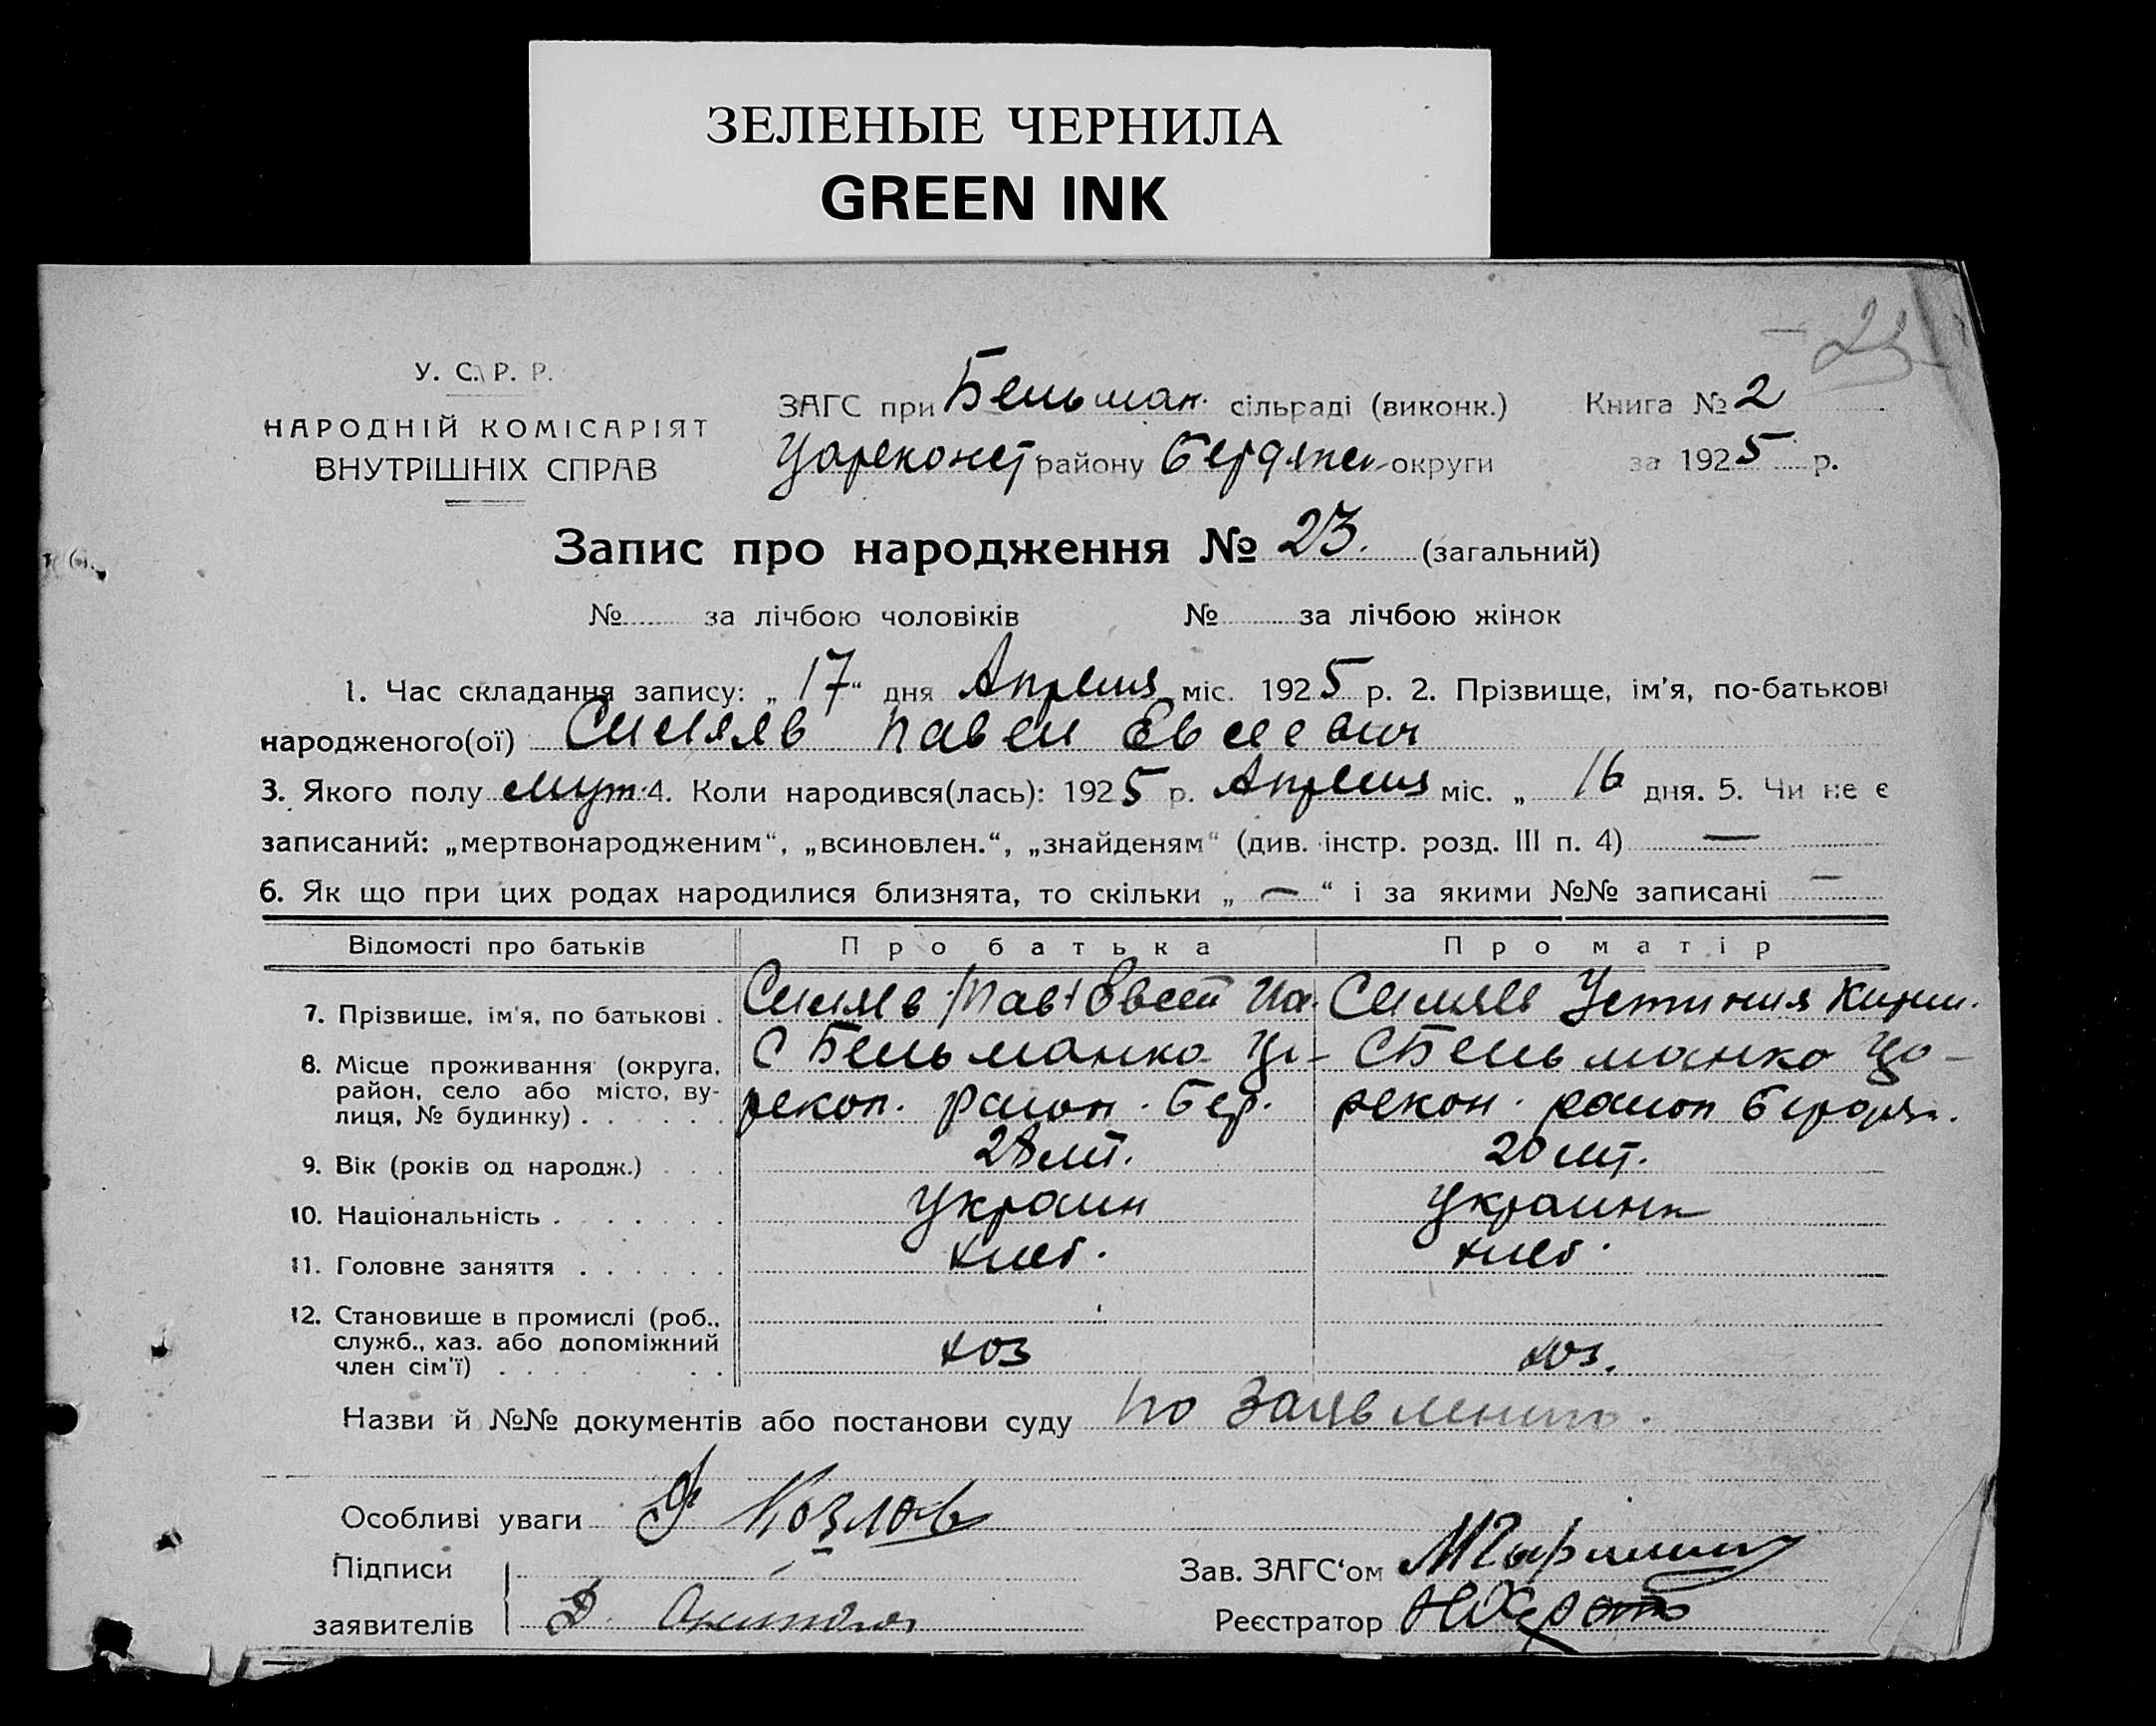 ЗЕЛЕНЫЕ ЧЕРНИЛА
GREEN INK
23
У. С. Р. Р.
НАРОДНІЙ КОМІСАРІЯТ
ВНУТРІШНІХ СПРАВ
ЗАГС при Бельман. сільраді (виконк.) Книга № 2
Цареконст району Бердянск округи за 1925 р.
Запис про народження № 23. (загальний)
№ за лічбою чоловіків № за лічбою жінок
1. Час складання запису: „17“ дня Апреля міс. 1925 р. 2. Прізвище, ім'я, по-батькові
народженого(ої) Павел Евсеевич
3. Якого полу муж. 4. Коли народився(лась): 1925 р. Апреля міс. „ 16 дня. 5. Чи не є
записаний: „мертвонародженим“, „всиновлен.“, „знайденям“ (див. інстр. розд. III п. 4) —
6. Як що при цих родах народилися близнята, то скільки „ — “ і за якими №№ записані —
Відомості про батьків Про батька Про матір
7. Прізвище, ім'я, по батькові . Евсей Устиния Кирил.
8. Місце проживання (округа, С Бельманка Ца- С Бельманка Ца-
район, село або місто, ву- рекон. район. Бер. рекон. район Бердян.
лиця, № будинку) . . . . . .
9. Вік (років од народж.) . . . 28 лет. 20 лет.
10. Національність . . . . . . . Украин Украинк
11. Головне заняття . . . . . . хлеб. хлеб.
12. Становище в промислі (роб.,
служб., хаз. або допоміжний хоз хоз.
член сім'ї) . . . . . . . .
Назви й №№ документів або постанови суду по заявлению.
Особливі уваги Козлов
Підписи Зав. ЗАГС'ом
заявителів Реєстратор